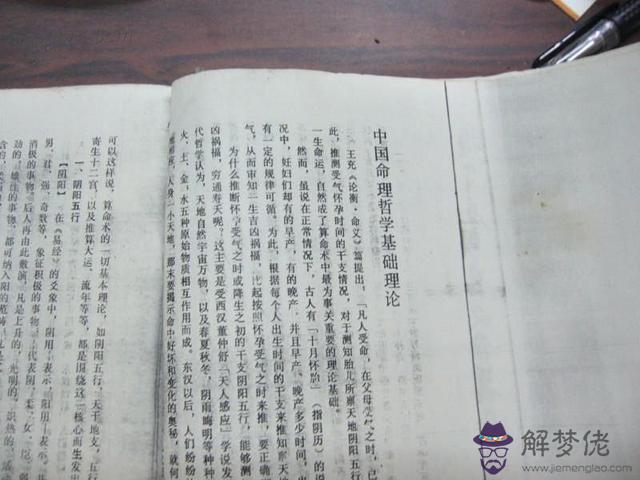 中国命理哲学基础理论
王充《论衡·命义》篇提出，「凡人受命，在父母受气之时，已
此，推测受气怀孕时间的干支情况，对于测知胎儿所禀天地阴阳五行
一生命运，自然成了算命术中最为事关重要的理论基础。
然而，虽说在正常情况下，古人有「十月怀胎」（指阴历）的说
况中，妊妇们却有的早产，有的晚产，并且早产、晚产多少时间，
有一定的规律可循。为此，根据每个人出生时间的干支来推知禀天地
气，从而审知一生吉凶祸福，比起按照怀孕受气之时来推，要正确
为什么推断怀孕受气之时或降生之初的干支阴阳五行，能够测
凶祸福，穷通寿夭呢？这主要是受西汉董仲舒「天人感应」学说发
代哲学认为，天地自然宇宙万物，以及春夏秋冬，阴雨晦明等种种
火、土、金、水五种原始物质相互作用而成。东汉以后，人们纷纷
人身一小天地，那末要揭示命中好坏和变化的奥秘，就何
可以这样说，算命术的一切基本理论，如阴阳五行，天干地支，五行
寄生十二宫，以及推算大运、流年等等，都是围绕这一核心而生发出
一、阴阳五行
【阴阳】 在《易经》的爻象中，阴用 表示，阳用 表示。
男、君、强、奇数等，象征积极的事物，代表阴、柔、女、臣、弱
消极的事物。后人再由此敷演，凡是上升的、光明的、炽热的、活
动的、雄性的事物，都可纳入阳的范畴
解梦佬
www.jiemenglao.com